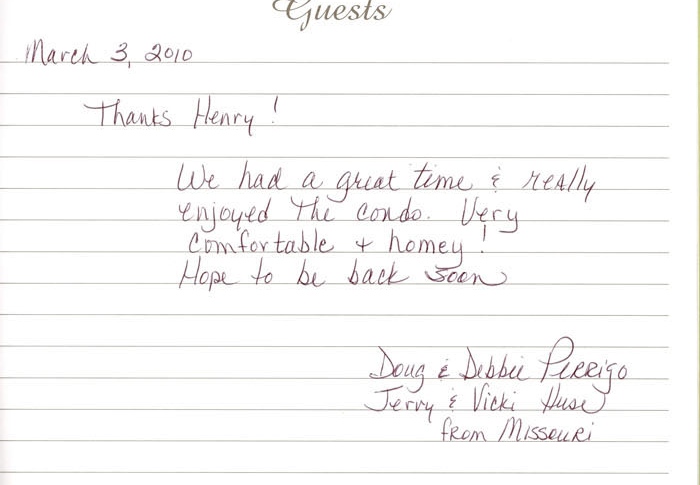 Guests
March 3, 2010
Thanks Henry!
We had a great time & really
enjoyed the condo. Very
comfortable + homey!
Hope to be back soon
Doug & Debbie Perrigo
Jerry & Vicki Huse
from Missouri